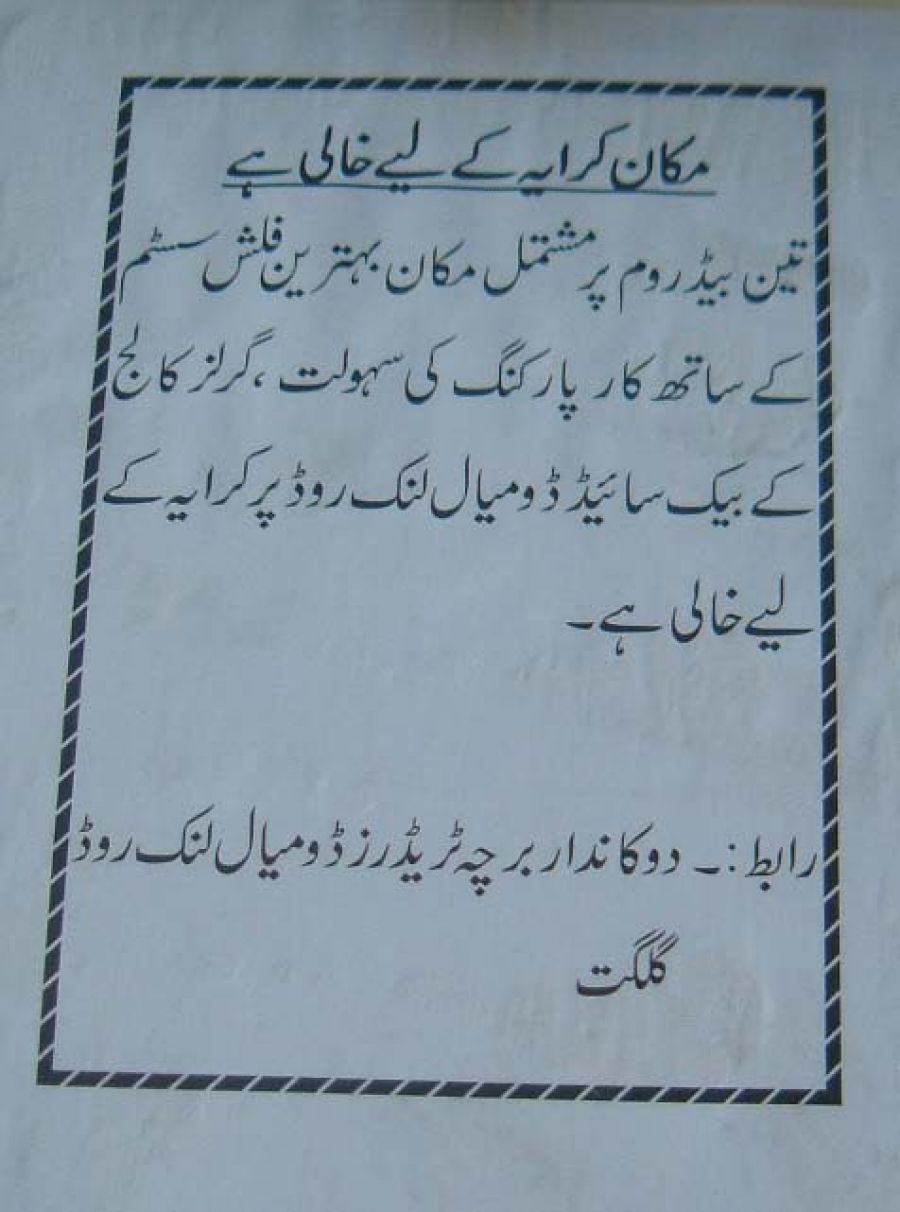 مکان کرایہ کے لیے خالی ہے
تین بیڈ روم پر مشتمل مکان بہترین فلش سسٹم
کے ساتھ کار پارکنگ کی سہولت ، گرلز کالج
کے بیک سائیڈ ڈومیال لنک روڈ پر کرایہ کے
لیے خالی ہے۔
رابط:۔ دوکاندار برچہ ٹریڈرز ڈومیال لنک روڈ
گلگت